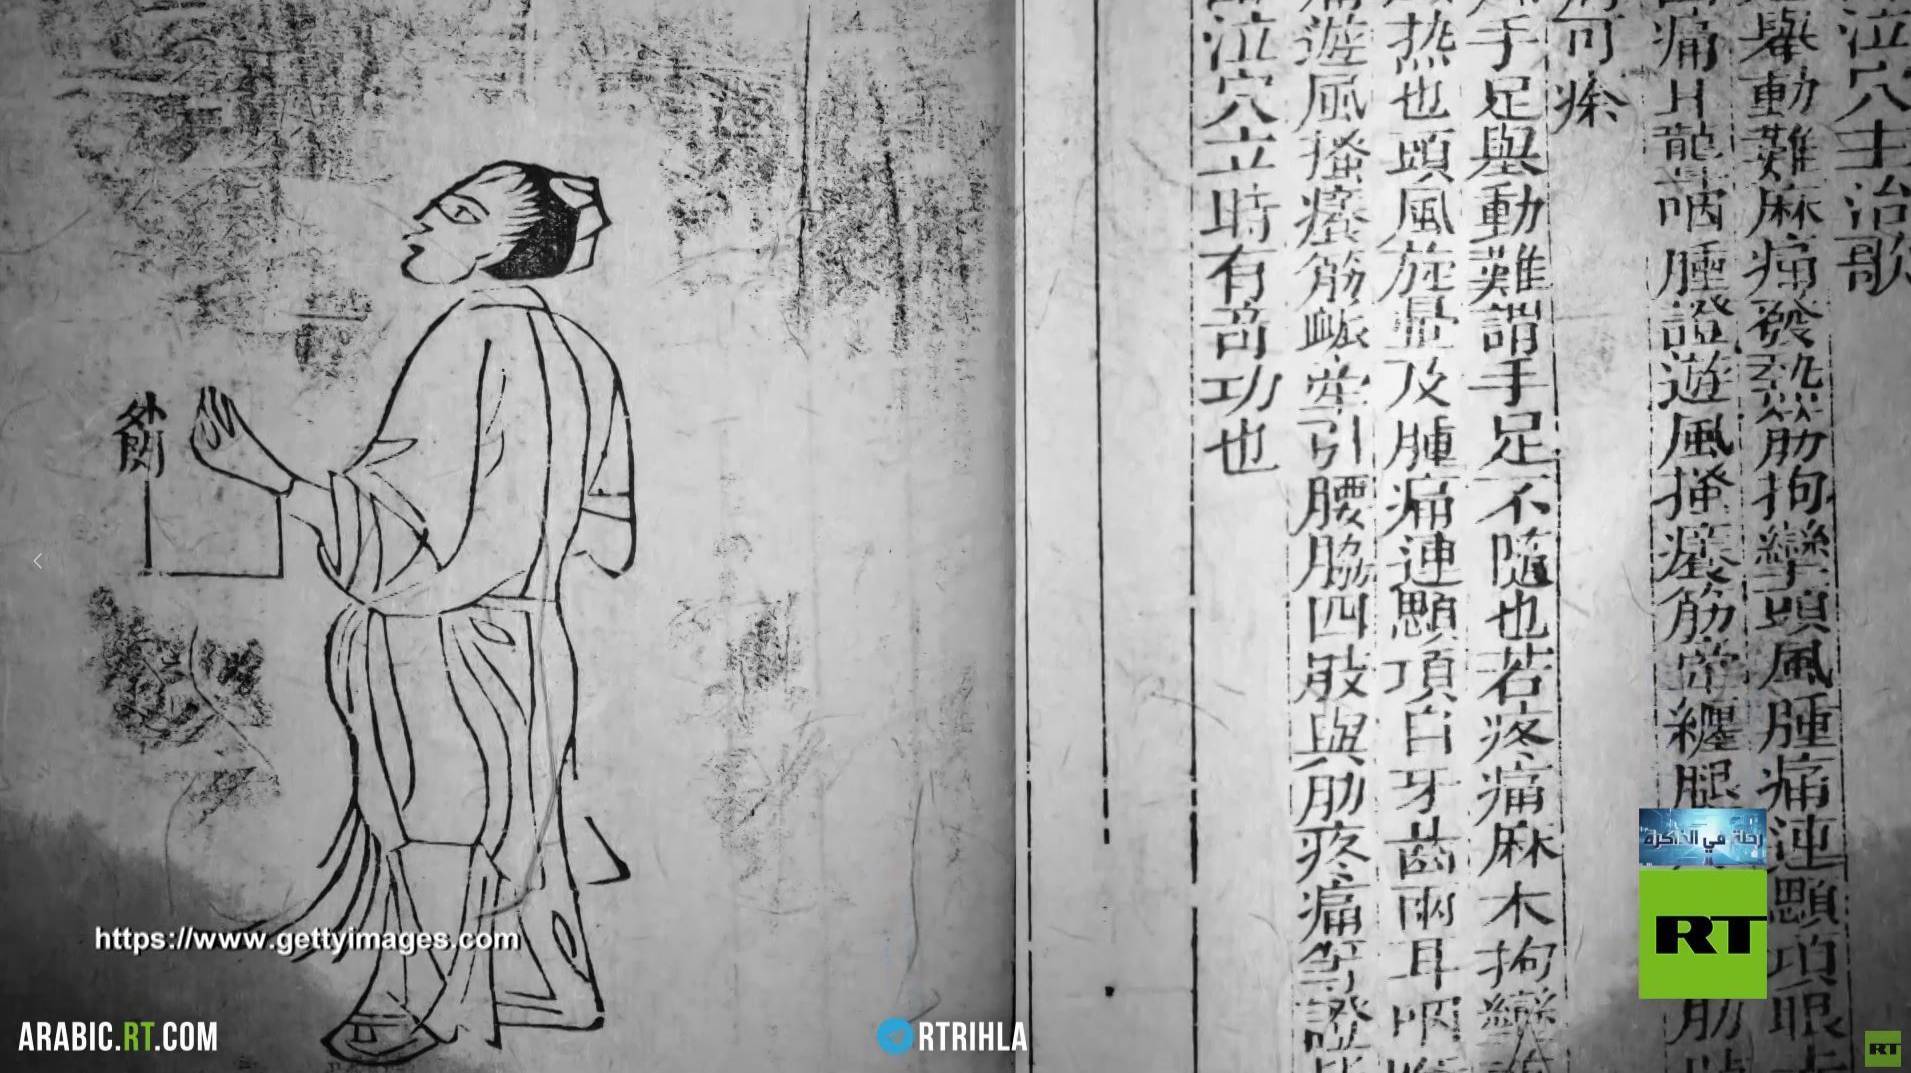 泣穴主治歌
舉動難麻痛發熱筋拘攣頭風腫痛連顋項眼
痛耳聾咽腫證遊風搔癢筋牽纏腿
肋
可痊
手足舉動難謂手足不隨也若疼痛麻木拘攣
熱也頭風旋暈及腫痛連顋項目牙齒兩耳咽
遊風搔癢筋衇牽引腰脇四肢與肋疼痛等證
泣穴立時有奇功也
外關
رحلة في الذاكرة
RT
https://www.gettyimages.com
ARABIC.RT.COM
RTRIHLA
RT